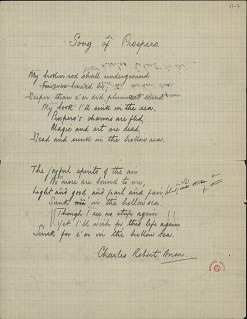 Song of Prospero.
My broken rod shall underground
Deeper than e'er did plummet sound
My book I'll sink in the sea.
Prospero's charms are fled,
Magic and art are dead,
Dead and sunk in the hollow sea.
The joyful spirits of the air
No more are bound to me,
Light and good, and pail and, pair
Sunk in the hollow sea.
Though I see no strife again
Yet I'll work for this life again
Sunk for e'er in the hollow sea.
Charles Robert Anon